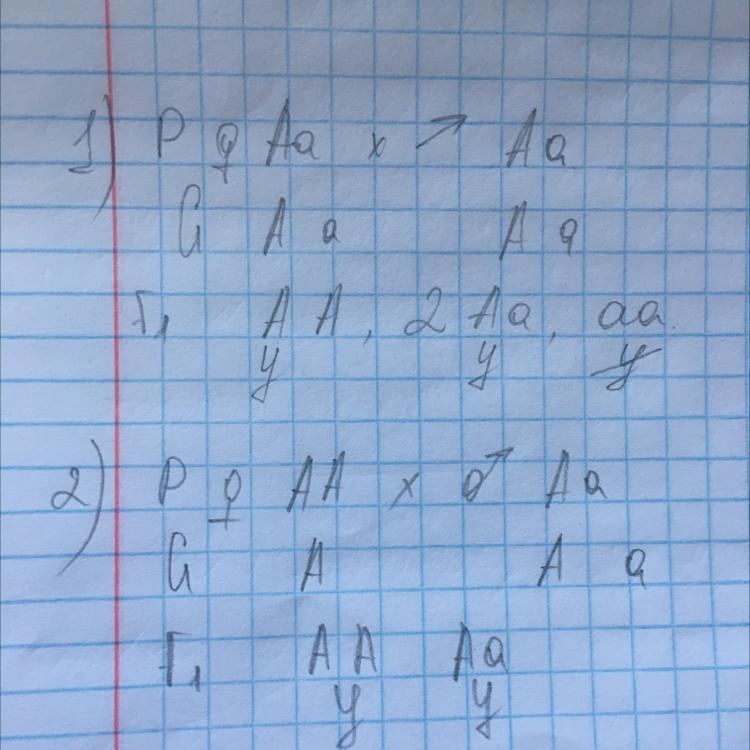 1) P ♀ Aa x → Aa
G A a A a
F1 AA, 2 Aa, aa
y y y
2) P ♀ AA x ♂ Aa
G A A a
F1 AA Aa
y y